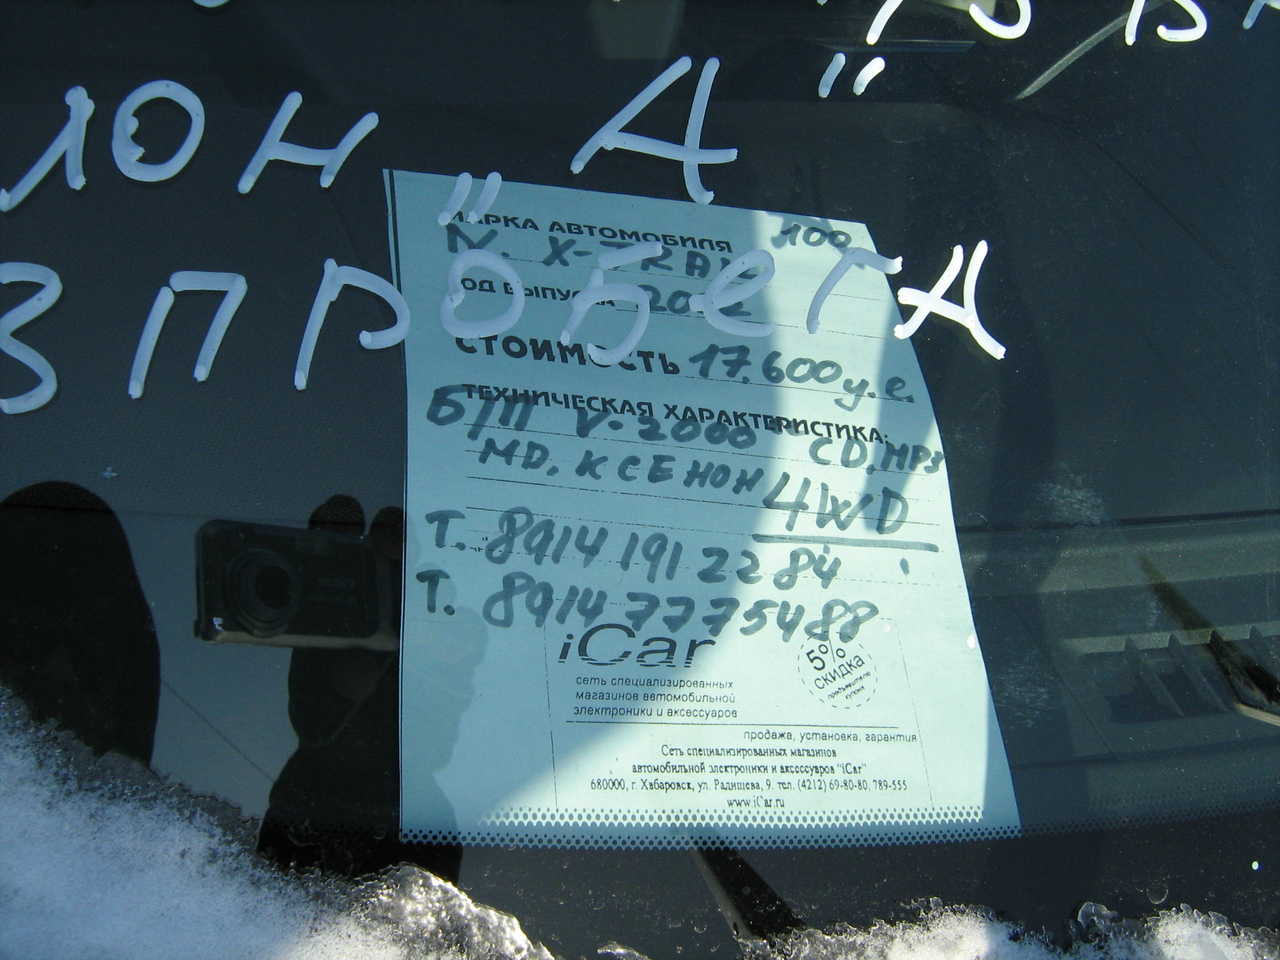 ЛОН "А"
З ПРОБЕГА
МАРКА АВТОМОБИЛЯ 100
N. X-TRAIL
ГОД ВЫПУСКА 2002
СТОИМОСТЬ 17.600 у.е.
ТЕХНИЧЕСКАЯ ХАРАКТЕРИСТИКА:
Б/П V-2000 CD, MP3
MD. КСЕНОН 4WD
Т. 8914 191 22 84
Т. 8914 7775488
iCar
5% СКИДКА
сеть специализированных
магазинов автомобильной
электроники и аксессуаров
продажа, установка, гарантия
Сеть специализированных магазинов
автомобильной электроники и аксессуаров "iCar"
680000, г. Хабаровск, ул. Радищева, 9. тел. (4212) 69-80-80, 789-555
www.iCar.ru